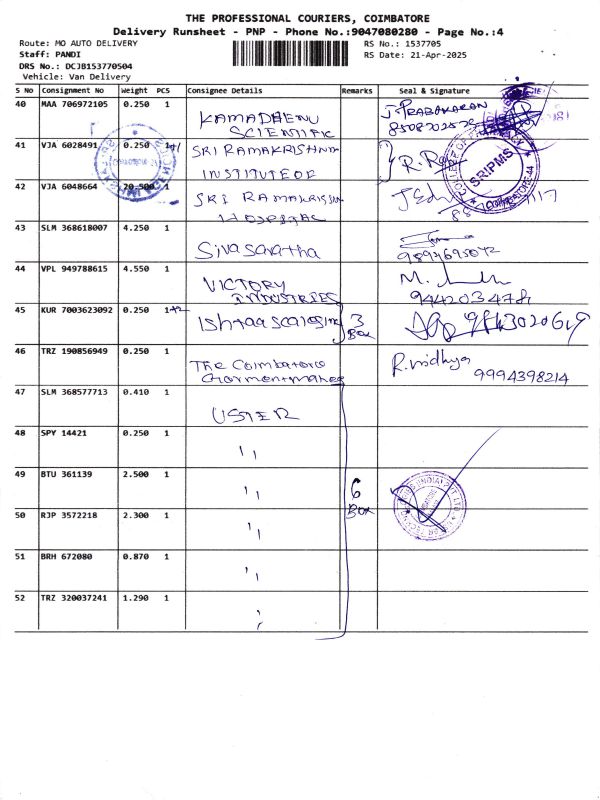 THE PROFESSIONAL COURIERS, COIMBATORE
Delivery Runsheet - PNP - Phone No.:9047080280 - Page No.:4
Route: MO AUTO DELIVERY
RS No.: 1537705
Staff: PANDI
RS Date: 21-Apr-2025
DRS No.: DCJB153770504
Vehicle: Van Delivery
S No Consignment No Weight PCS Consignee Details Remarks Seal & Signature
40 MAA 706972105 0.250 1 KAMADHENU SCIENTIFIC J. PRABAKARAN
41 VJA 6028491 0.250 SRI RAMAKRISHNA INSTITUTE OF
COLLEGE OF
SRIPMS
42 VJA 6048664 20.500 1 SRI RAMAKRISHN HOSPITAL
43 SLM 368618007 4.250 1 Sivasavatha
44 VPL 949788615 4.550 1 VICTORY INDUSTRIES
9442034781
45 KUR 7003623092 0.250 1+2 3 Box
46 TRZ 190856949 0.250 1 The Coimbatore R. Vidhya
9994398214
47 SLM 368577713 0.410 1 USTER
48 SPY 14421 0.250 1 ''
49 BTU 361139 2.500 1 '' 6 Box
50 RJP 3572218 2.300 1 ''
51 BRH 672080 0.870 1 ''
52 TRZ 320037241 1.290 1 ''